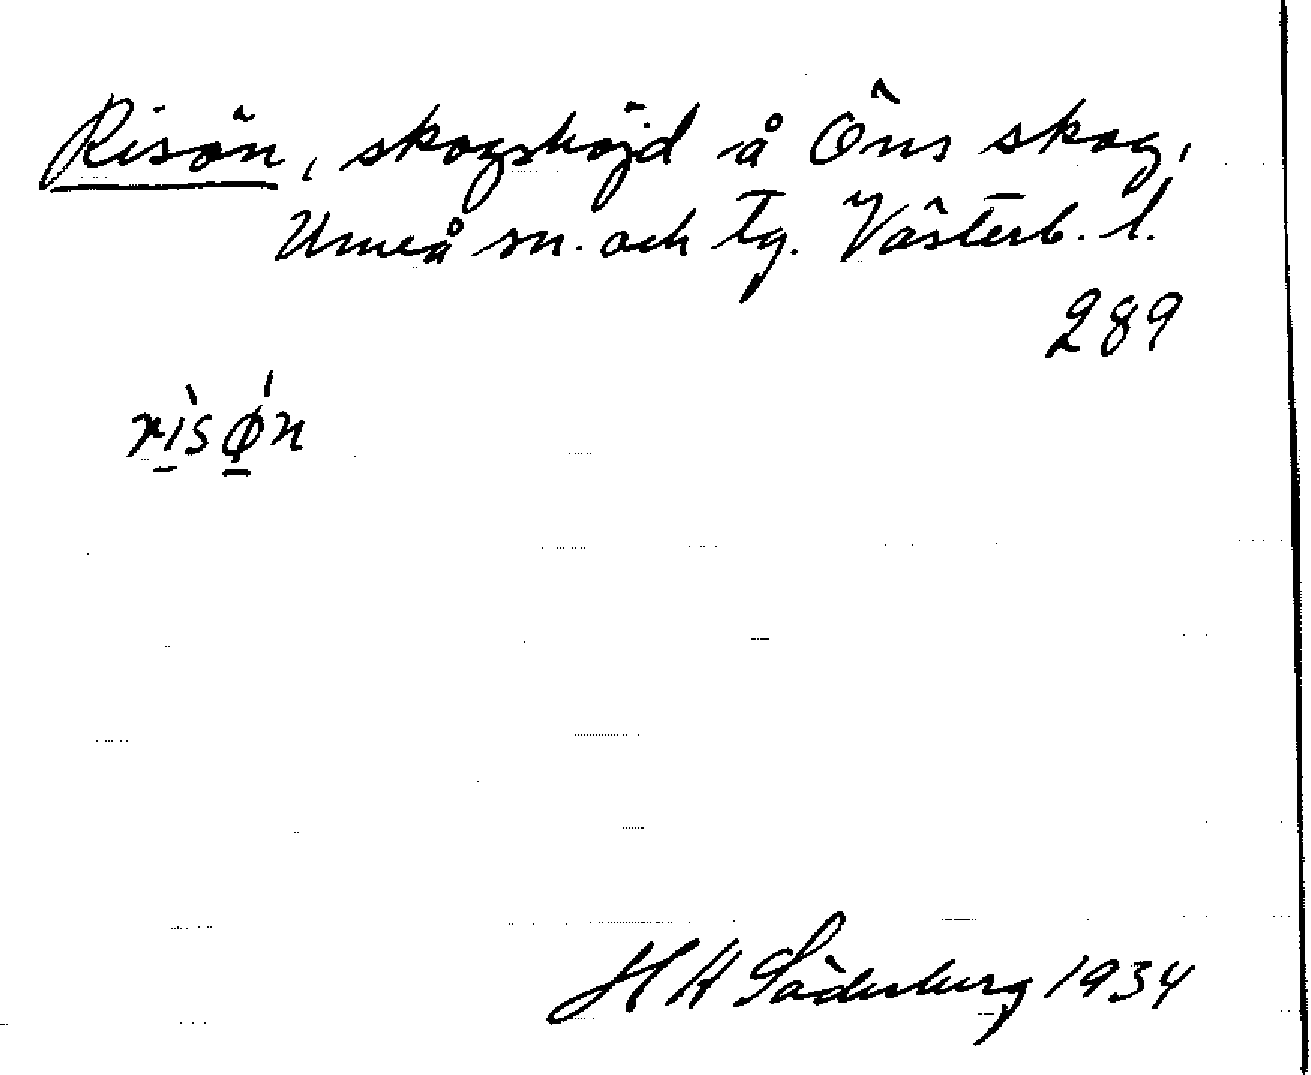 Risön, skogshöjd å Öns skog,
Umeå sn. och tg. Västerb. l.
289
rì̠sǿ̠n
H A Söderberg 1934